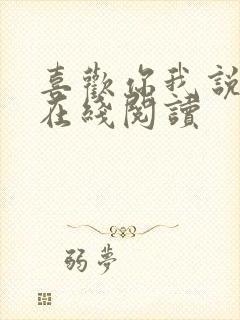 喜歡你我說
在綫閱讀
弱夢